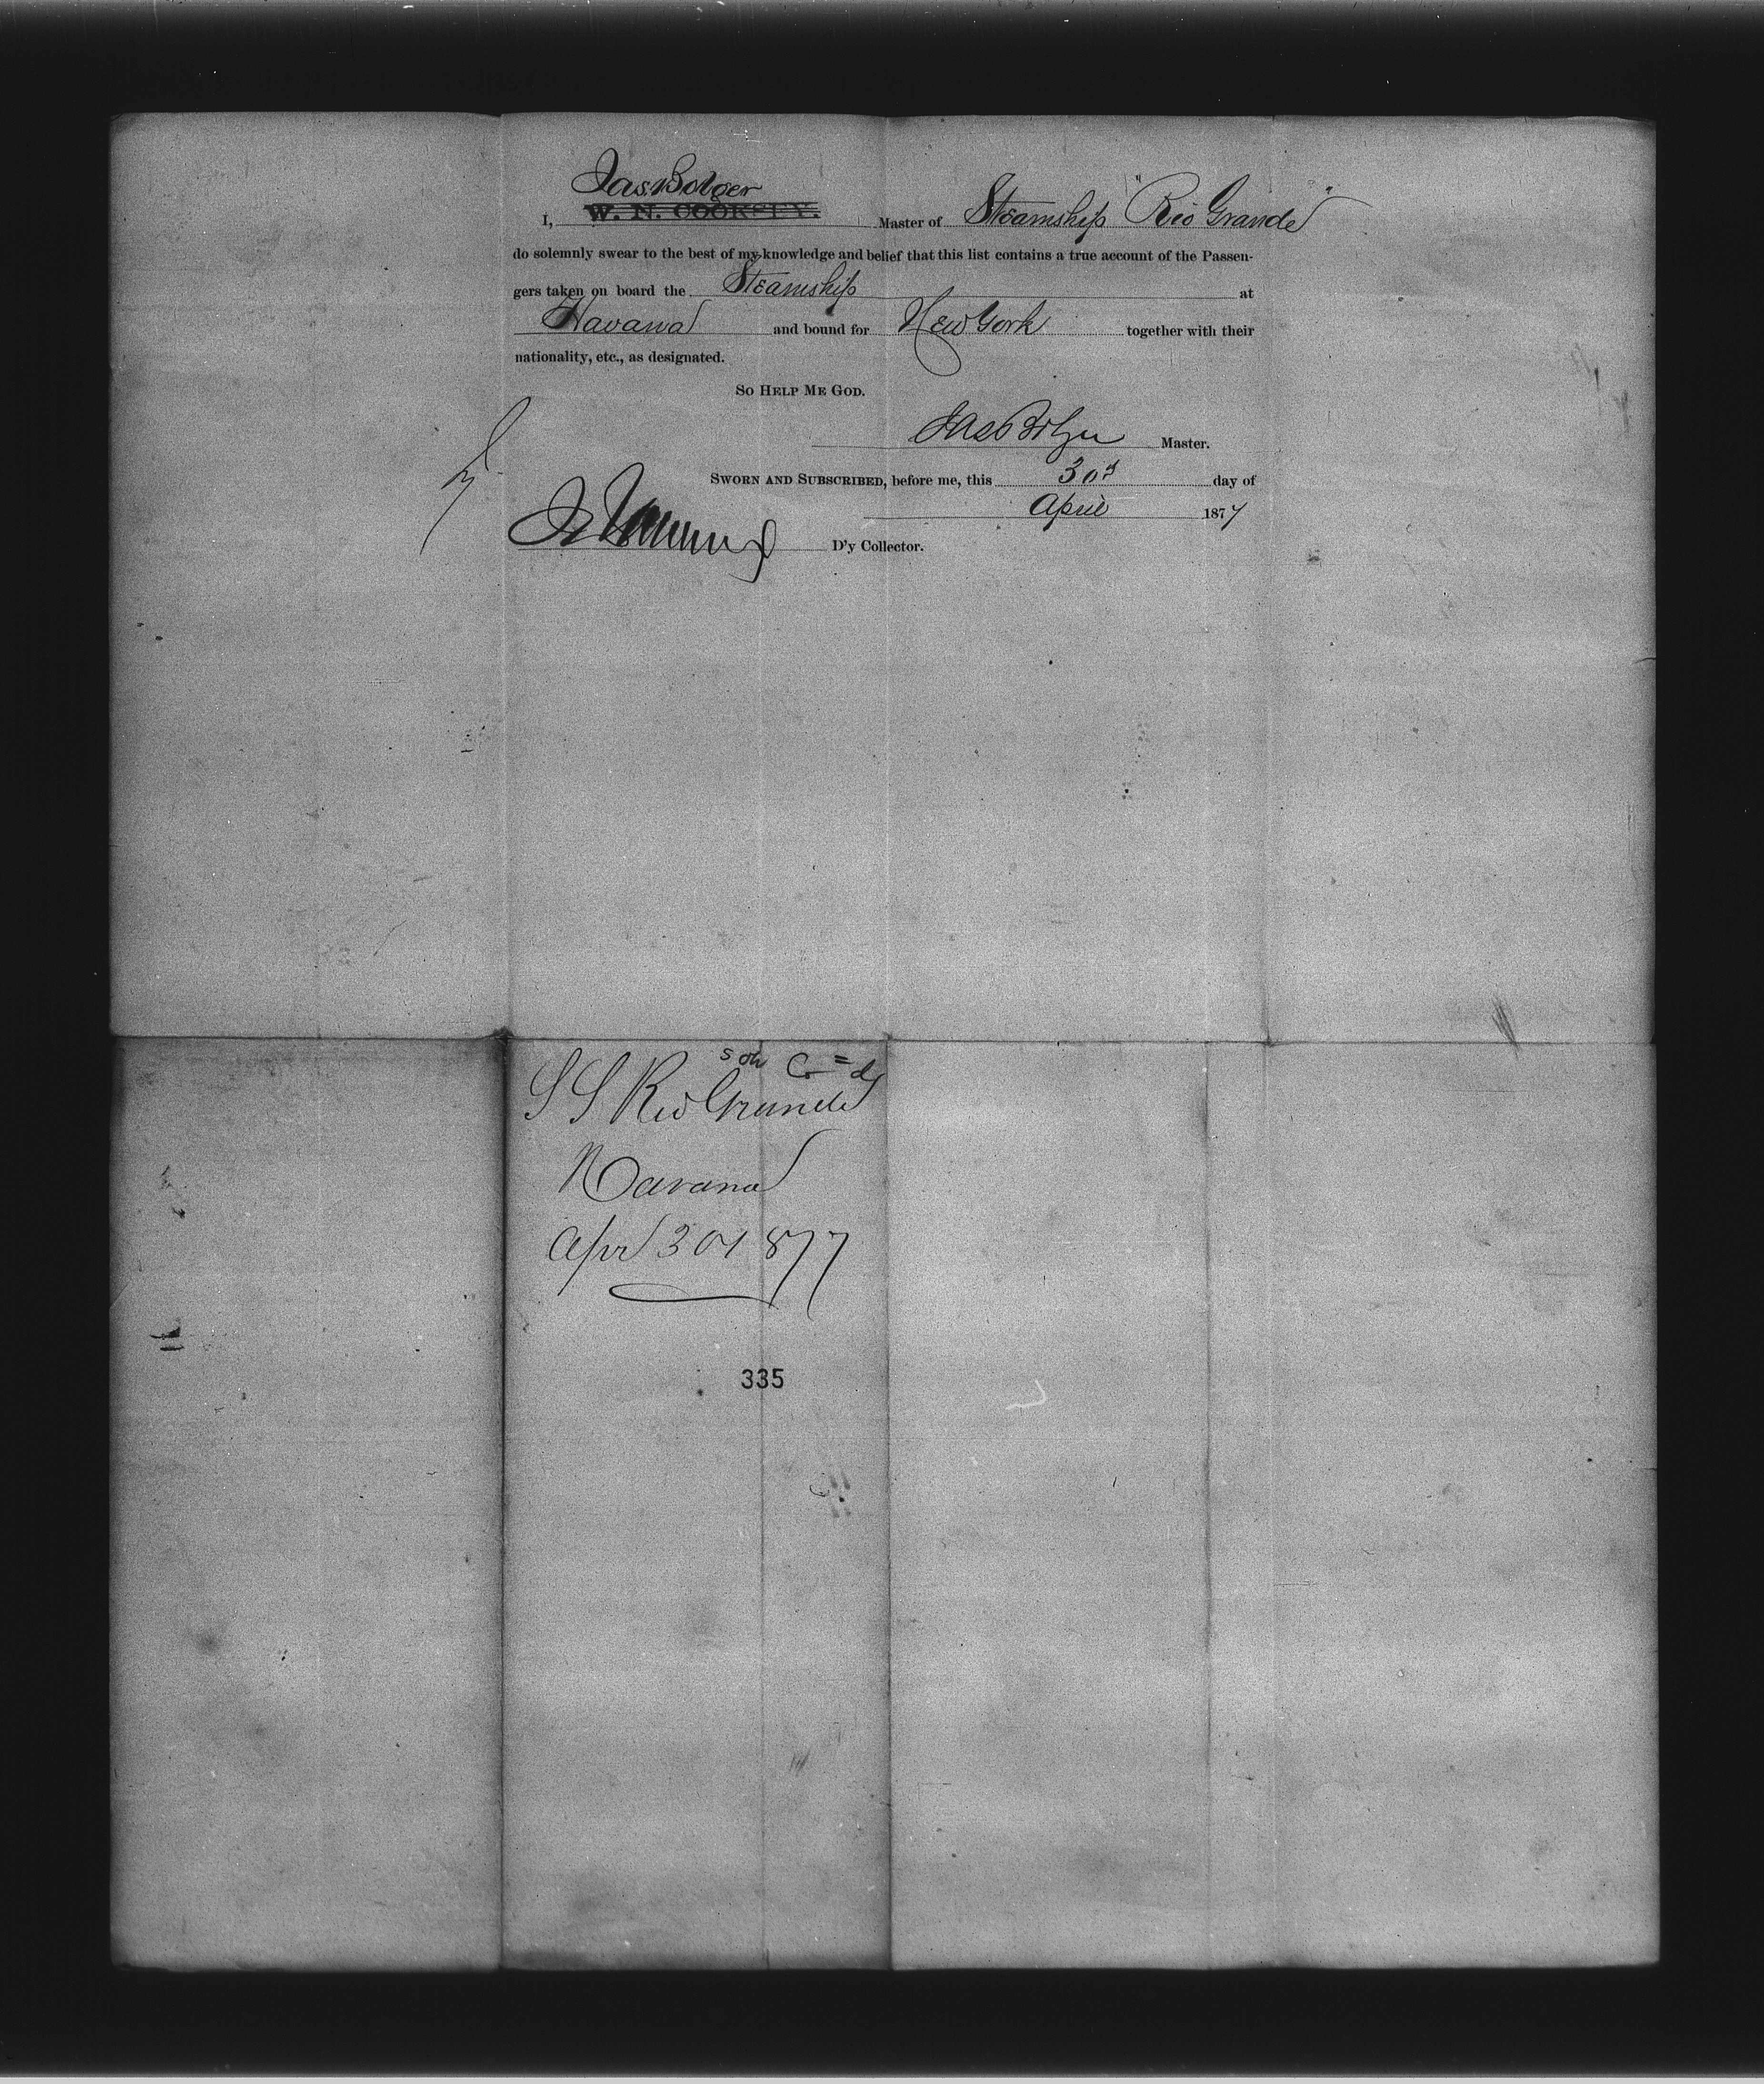 Jas. Bolger
I, W. N. COOKSEY. Master of Steamship "Rio Grande"
do solemnly swear to the best of my knowledge and belief that this list contains a true account of the Passen-
gers taken on board the Steamship at
Havana and bound for New York together with their
nationality, etc., as designated.
SO HELP ME GOD.
Jas Bolger Master.
SWORN AND SUBSCRIBED, before me, this 30th day of
April 1877
D'y Collector.
S S Rio Grande
Havana
Apr 30 1877
335